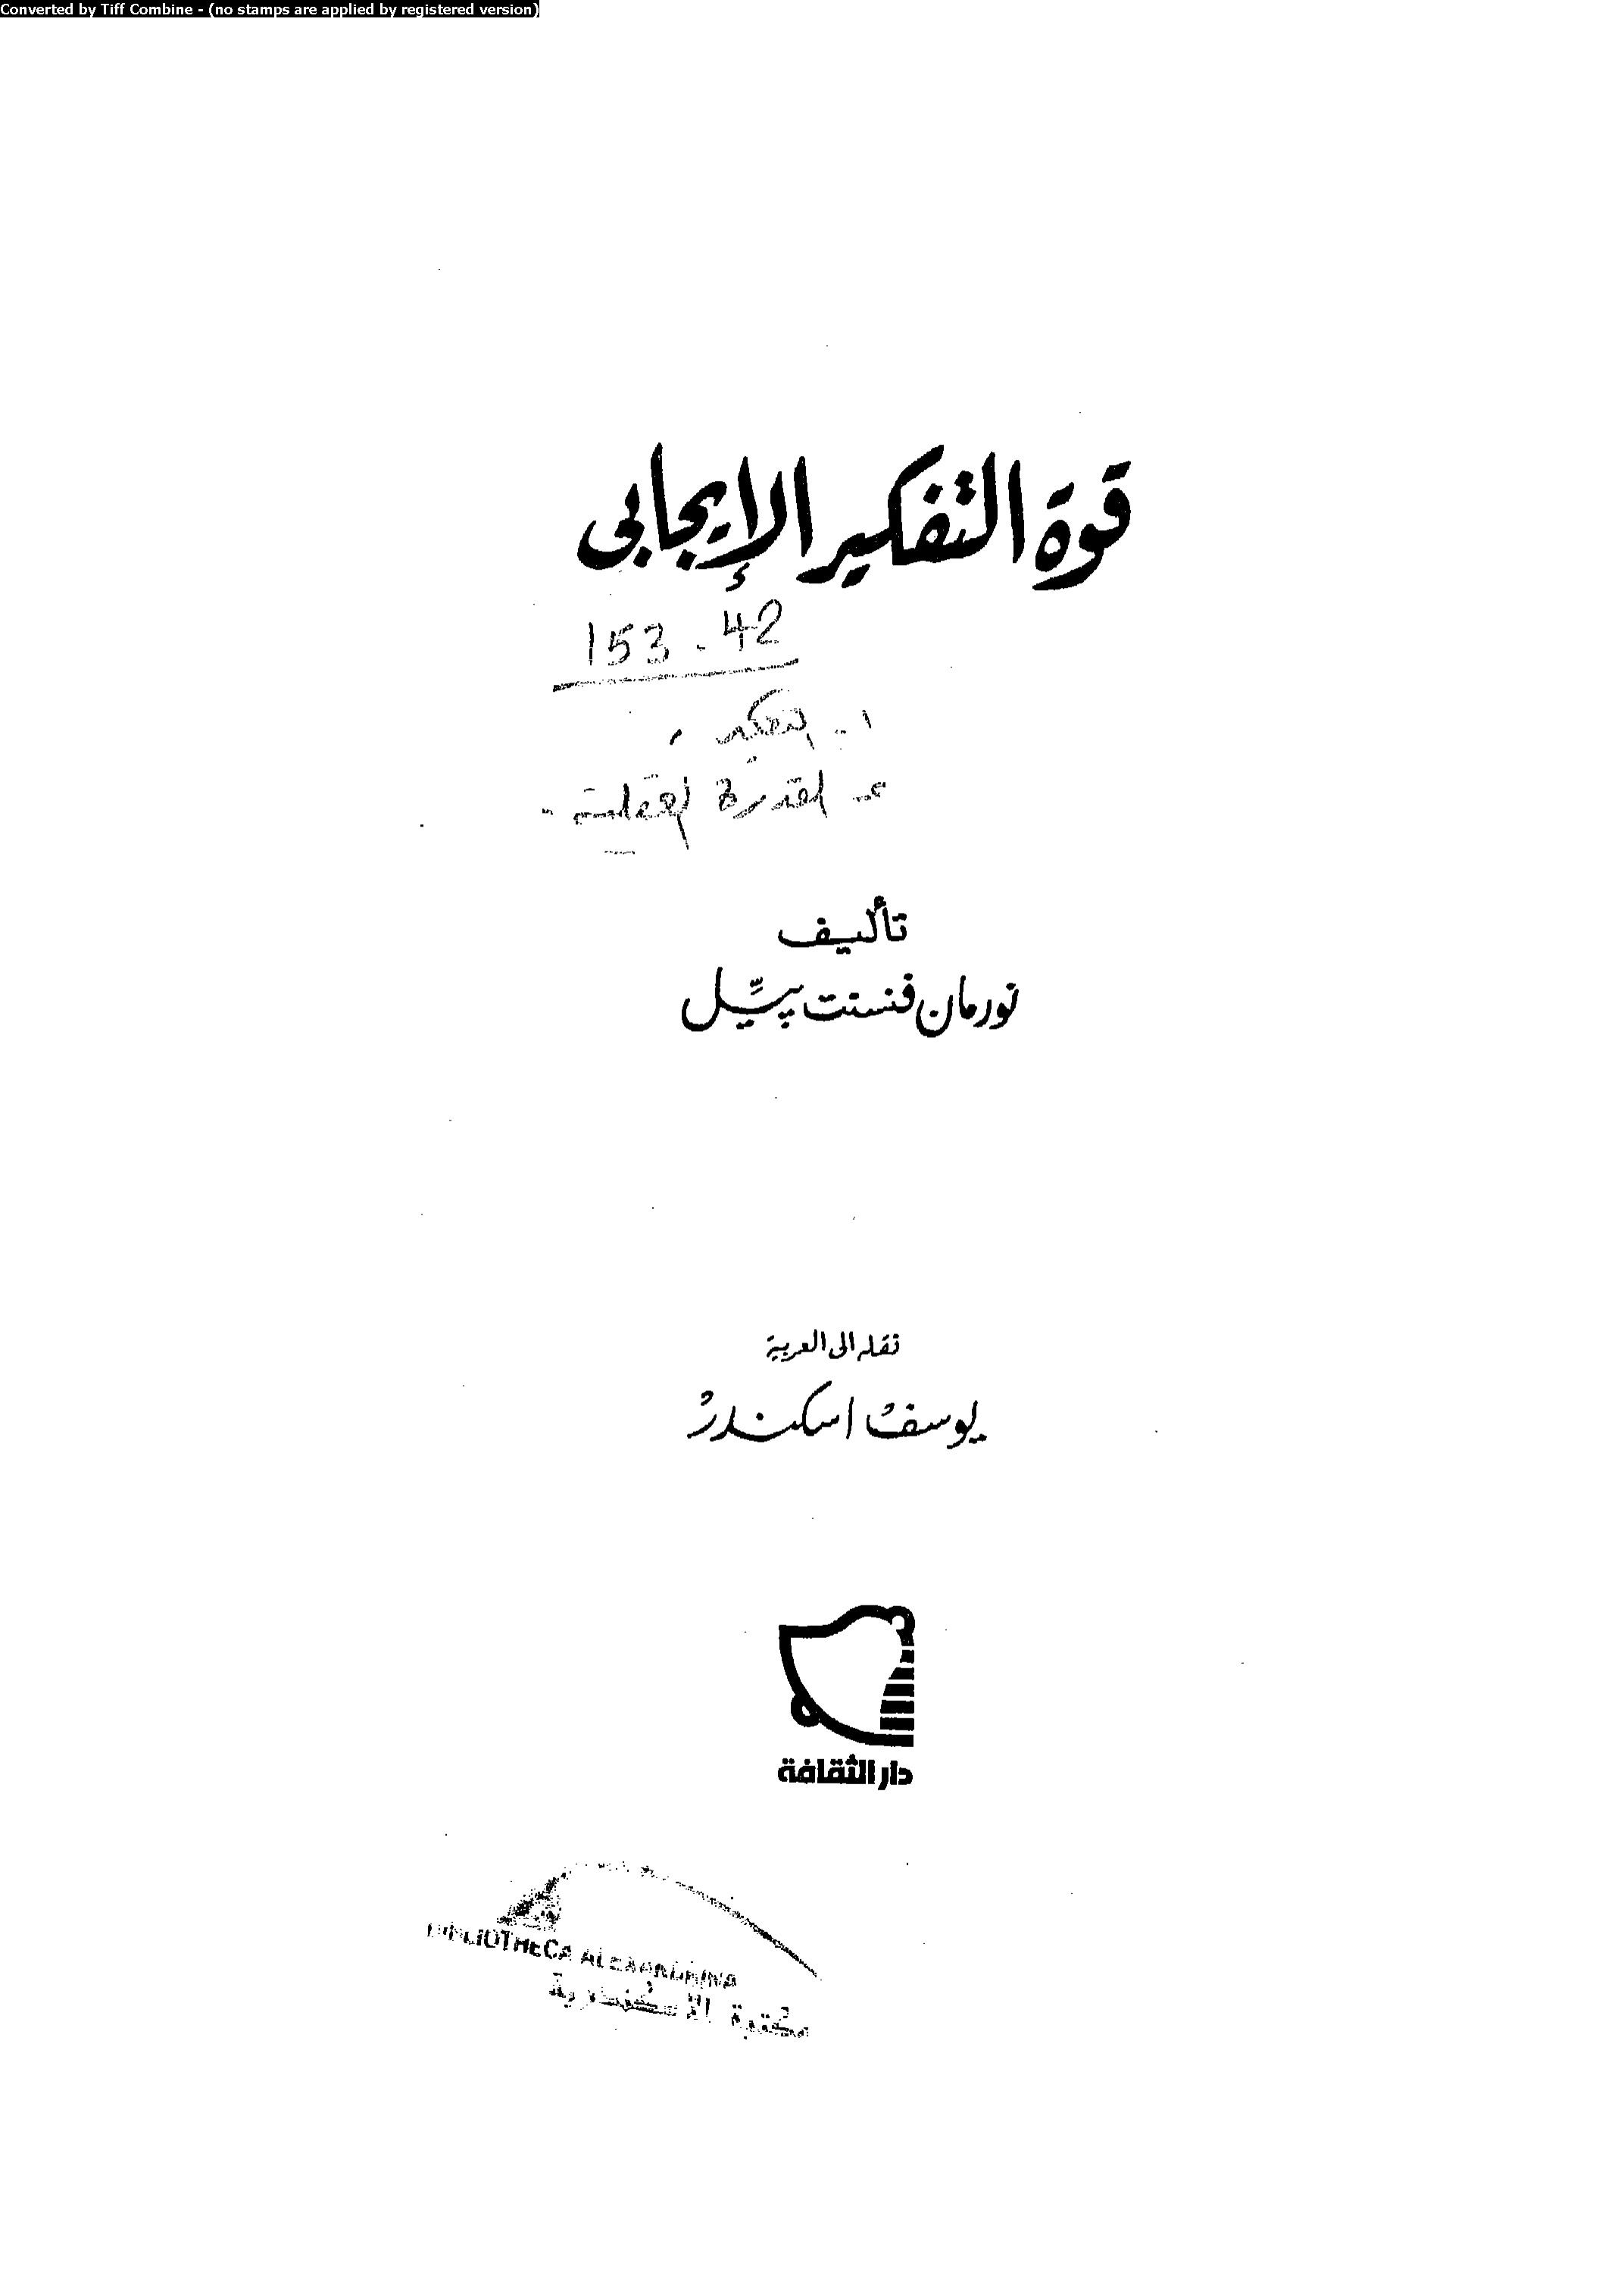 Converted by Tiff Combine - (no stamps are applied by registered version)
قوة التفكير الإيجابى
153.42
١- التفكير
٢- القدرة العقلية -
تأليف
نورمان فنسنت پيِّل
نقله الى العربية
يوسف اسكندر
دار الثقافة
BIBLIOTHECA ALEXANDRINA
مكتبة الاسكندرية